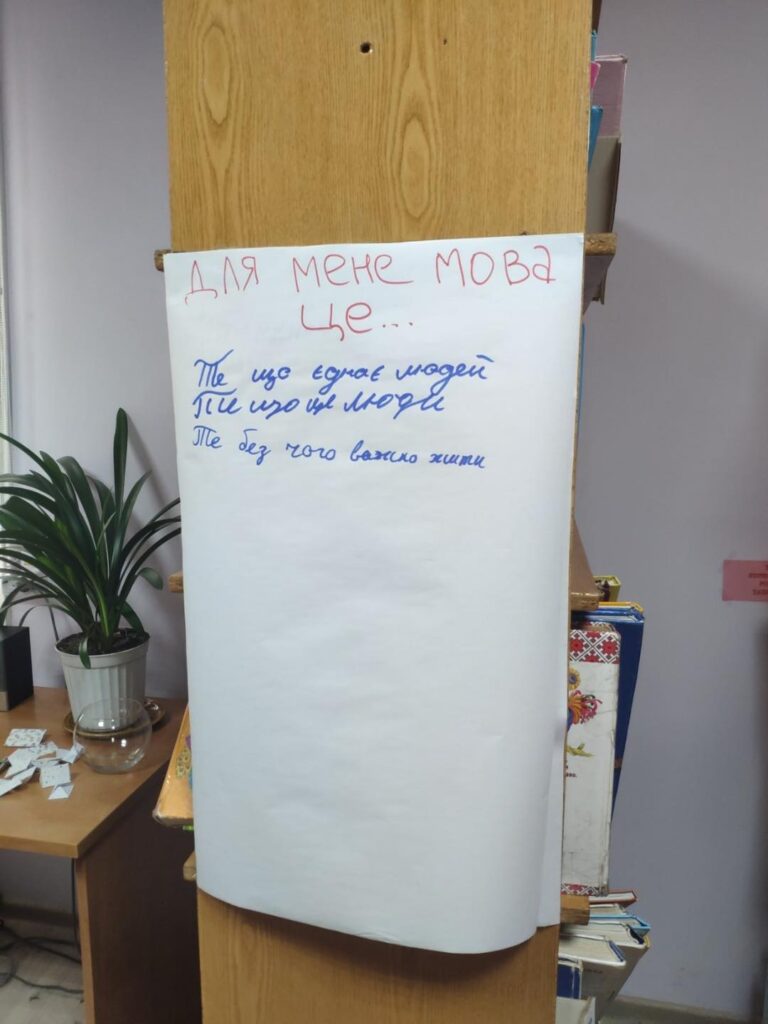 для мене мова
це...
Те що єднає людей
що це люди
Те без чого важко жити